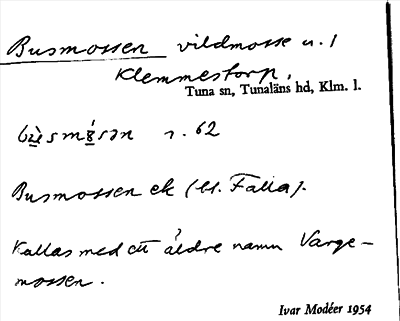 Busmossen vildmosse u. 1
Klemmestorp,
Tuna sn, Tunaläns hd, Klm. l.
r. 62
Busmossen ek (bl. Falla).
Kallas med ett äldre namn Varge-
mossen.
Ivar Modéer 1954